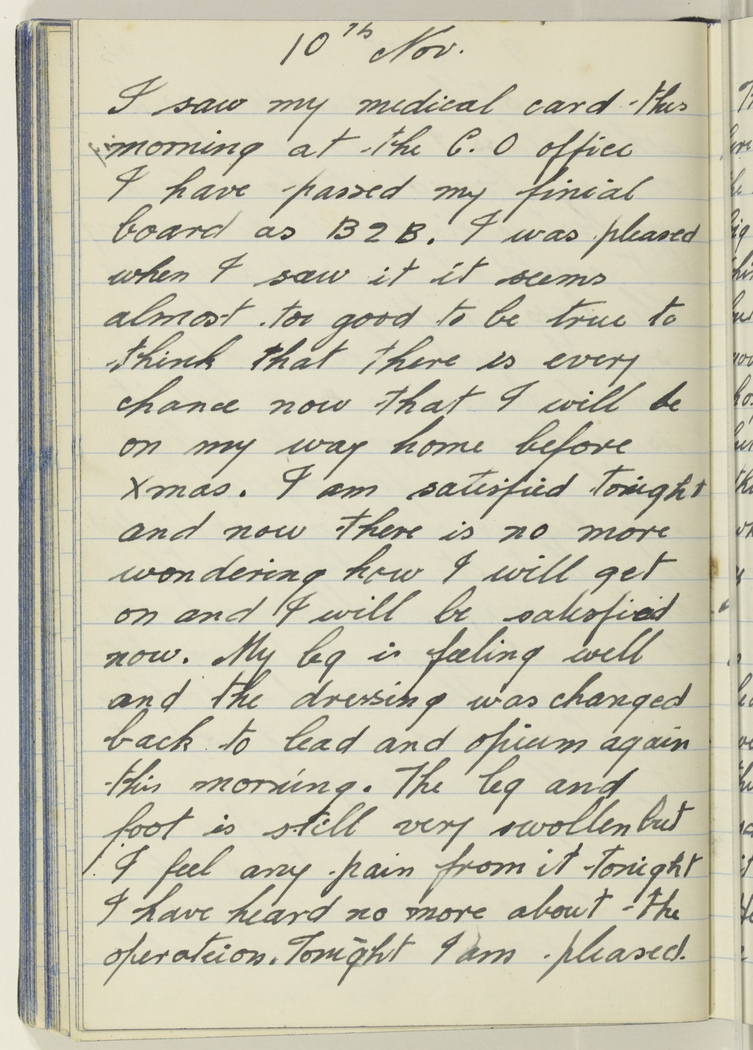 10th Nov.
I saw my medical card this
morning at the C.O office
I have passed my finial
board as B2B. I was pleased
when I saw it it seems
almost too good to be true to
think that there is every
chance now that I will be
on my way home before
Xmas. I am satisfied tonight
and now there is no more
wondering how I will get
on and I will be satisfied
now. My leg is feeling well
and the dressing was changed
back to lead and opium again
this morning. The leg and
foot is still very swollen but
I feel any pain from it tonight
I have heard no more about the
operation. Tonight I am pleased.